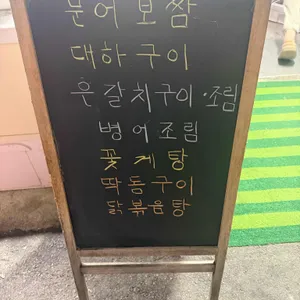 문어보쌈
대하구이
은갈치구이·조림
병어조림
꽃게탕
딱돔구이
닭볶음탕